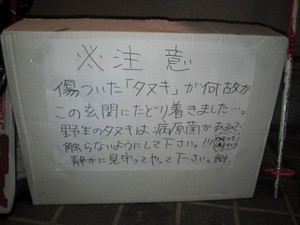 ※注意
傷ついた「タヌキ」が何故か
この玄関にたどり着きました…。
野生のタヌキは病原菌が
触らないようにして下さい。!!
静かに見守ってやって下さい。